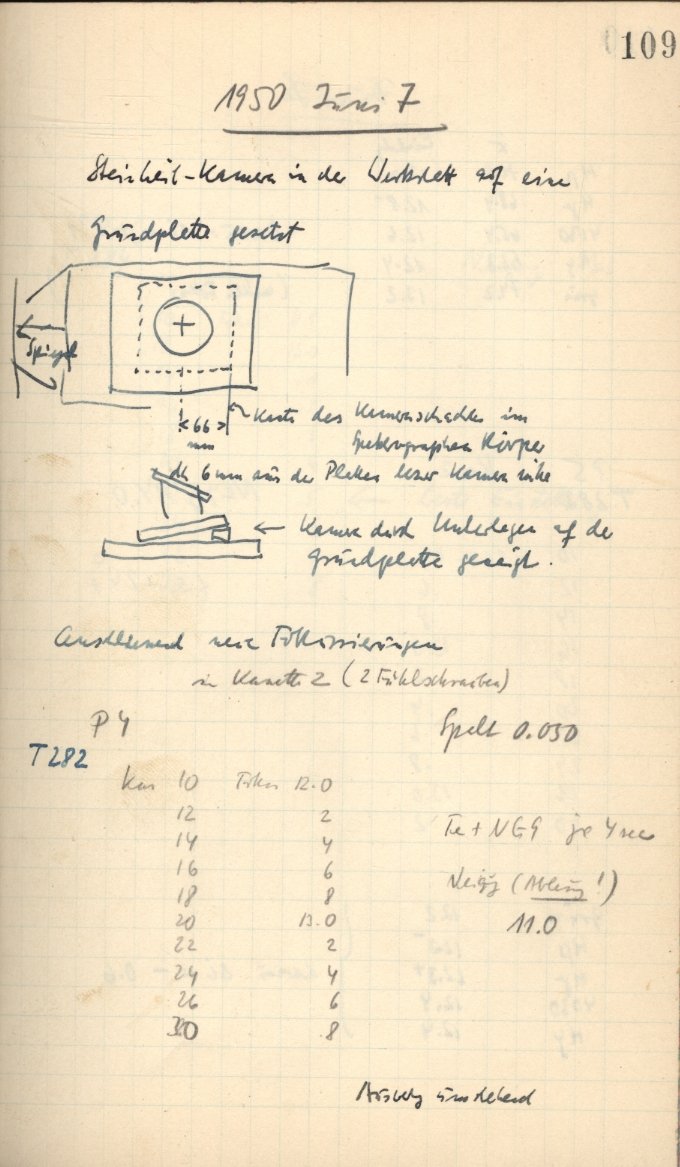 109
1950 Juni 7
Steinheil-Kamera in der Werkstatt auf eine
Grundplatte gesetzt
Spiegel
66
mm
Kante des Kameraschachtes im
Spektrographen Körper
6 mm aus der Platten Kamera
Kamera durch Unterlegen auf der
Grundplatte geneigt.
Anschliessend neue Fokussierungen
in Kassette 2 (2 Fühlschrauben)
P 4
Spalt 0.050
T 282
Kas 10 Fokus 12.0
12 2
14 4
Fe + NG9 je 4 sec
16 6
Neigg (Ablesg!)
18 8
20 13.0
11.0
22 2
24 4
26 6
30 8
umstehend